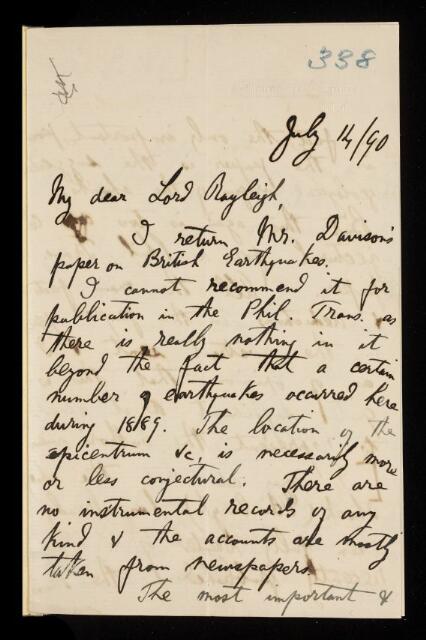 338
July 14/90
My dear Lord Rayleigh,
I return Mr. Davison's
paper on British Earthquakes.
I cannot recommend it for
publication in the Phil. Trans. as
there is really nothing in it
beyond the fact that a certain
number of earthquakes occurred here
during 1889. The location of the
epicentrum &c, is necessarily more
or less conjectural. There are
no instrumental records of any
kind & the accounts are mostly
taken from newspapers.
The most important &